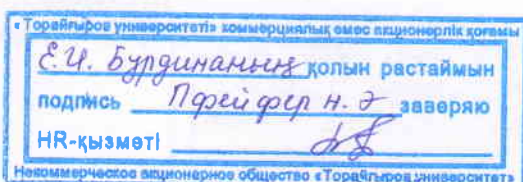 «Торайғыров университеті» коммерциялық емес акционерлік қоғамы
Е.И. Бурдинаның қолын растаймын
подпись Пфейфер Н. Э заверяю
HR-қызметі
Некоммерческое акционерное общество «Торайғыров университет»